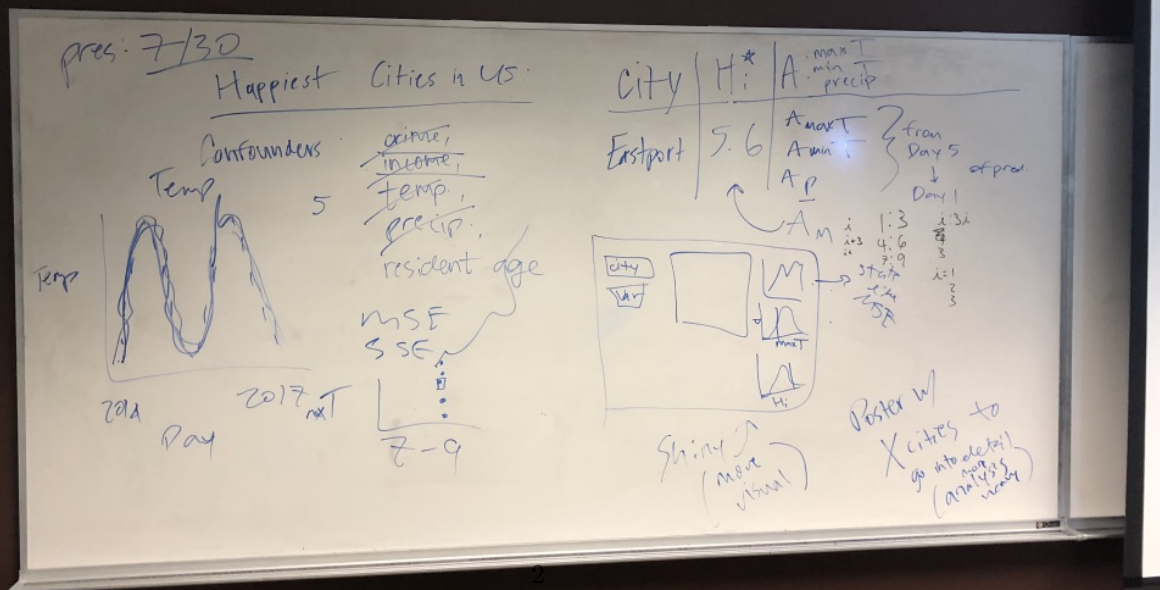 pres: 7/30
Happiest Cities in US
Confounders
crime,
income,
temp.,
precip.,
resident age
5
Temp
Temp
2014
2017
Day
MSE
SSE
maxT
7-9
City
Hi*
A
maxT
min T
precip
Eastport
5.6
AmaxT
AminT
Ap
from
Day 5
↓
Day 1
of pred.
AM
i
i+3
1:3
4:6
7:9
i:3i
3
i=1
2
3
city
var
maxT
Hi
Shiny
(more
visual)
Poster w/
X cities to
go into detail
more
(analysis